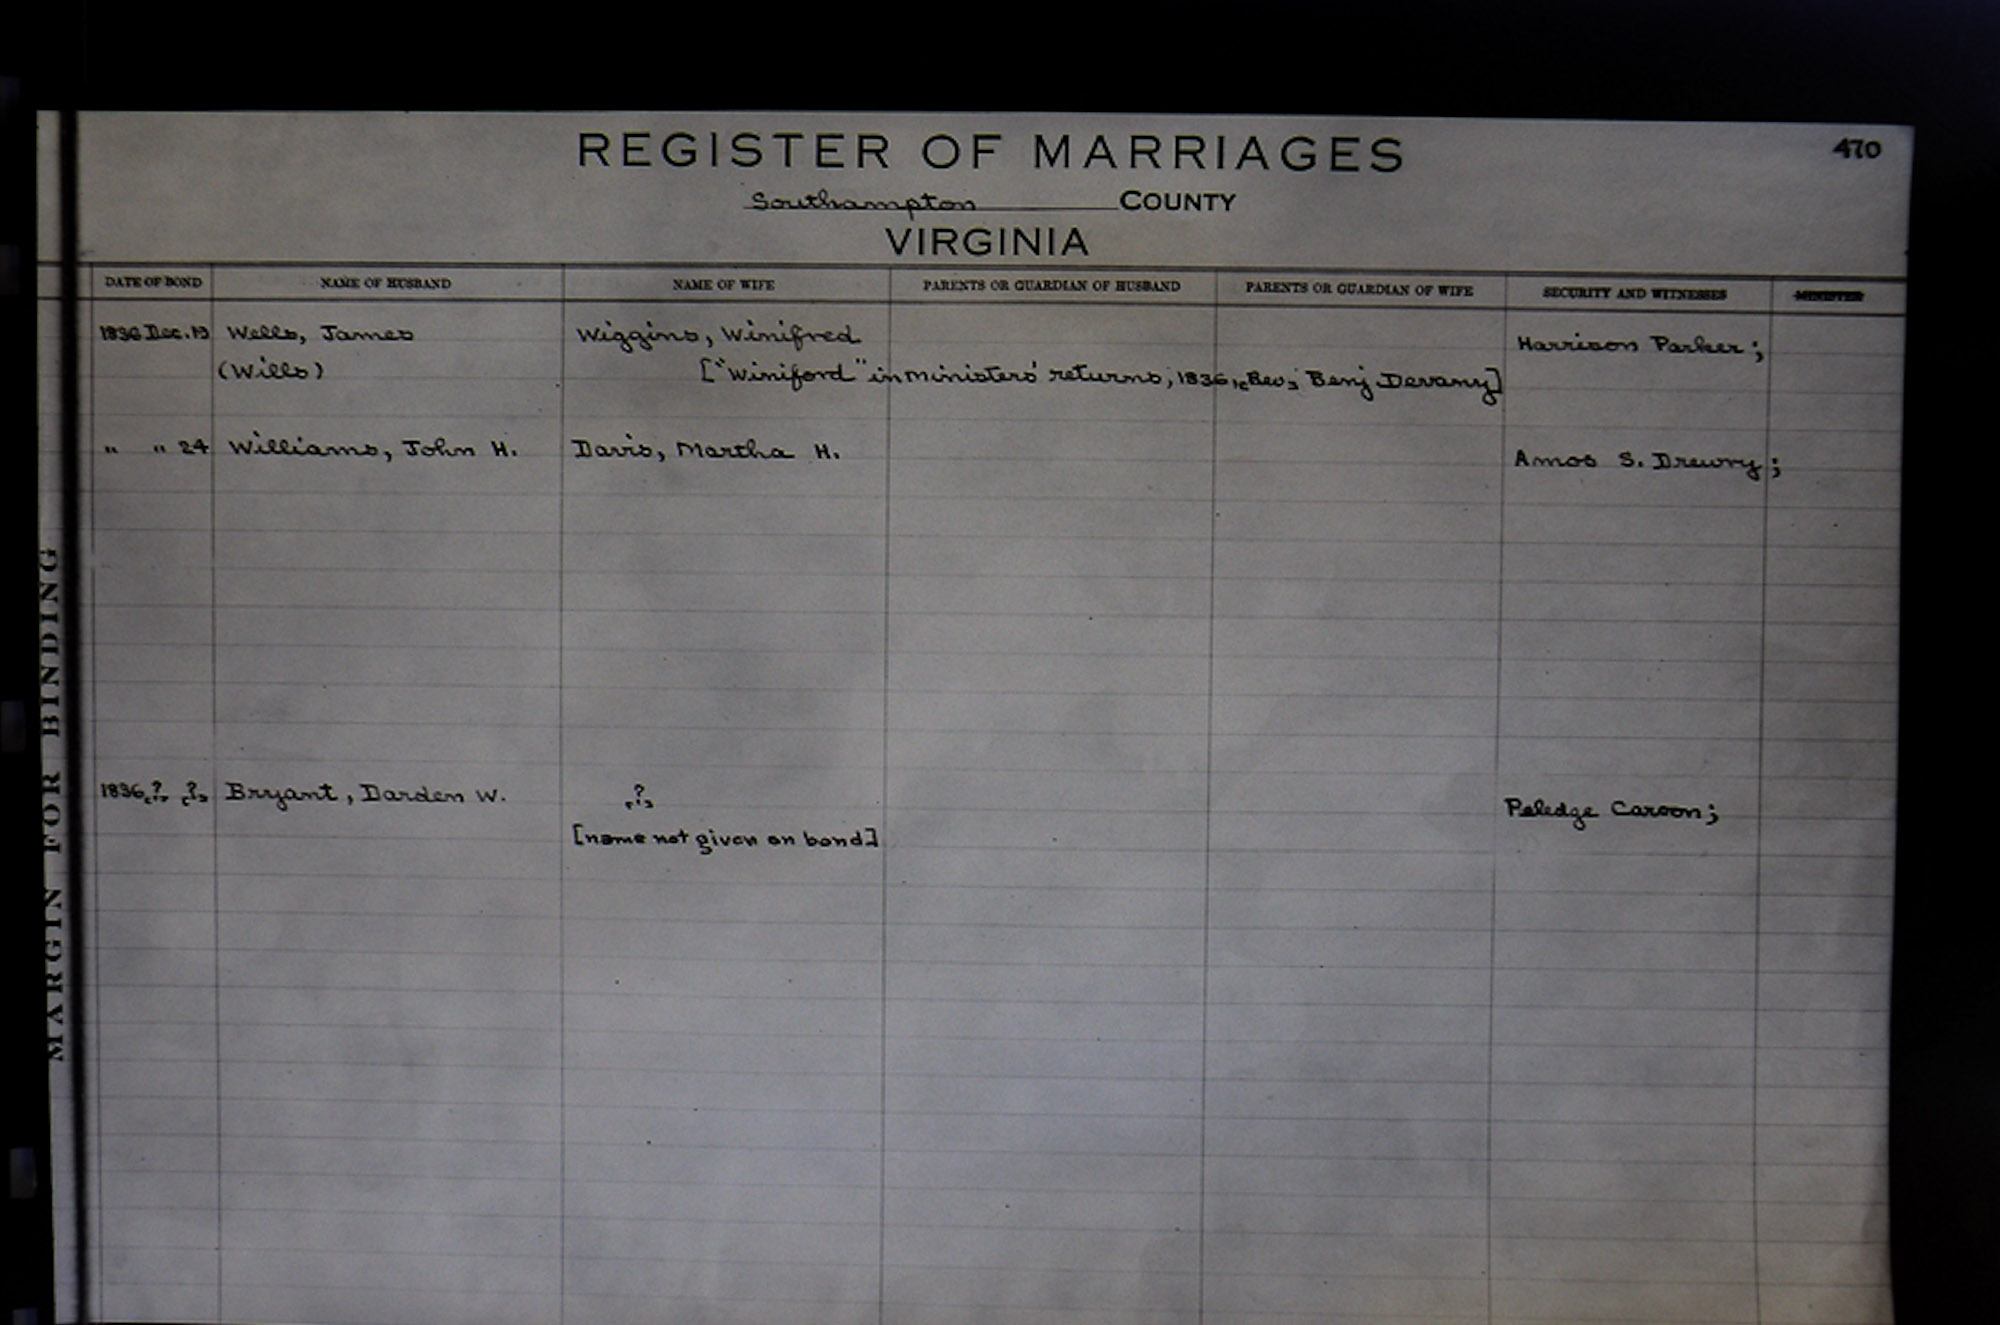 REGISTER OF MARRIAGES 470
Southampton COUNTY
VIRGINIA
DATE OF BOND NAME OF HUSBAND NAME OF WIFE PARENTS OR GUARDIAN OF HUSBAND PARENTS OR GUARDIAN OF WIFE SECURITY AND WITNESSES MINISTER
1836 Dec. 19 Wells, James Wiggins, Winifred Harrison Parker;
(Wills) ["Winiford" in ministers' returns, 1836, [Rev.] Benj Devany]
" " 24 Williams, John H. Davis, Martha H. Amos S. Drewry;
1836 [?] [?] Bryant, Darden W. [?] Peledge Carson;
[name not given on bond]
MARGIN FOR BINDING